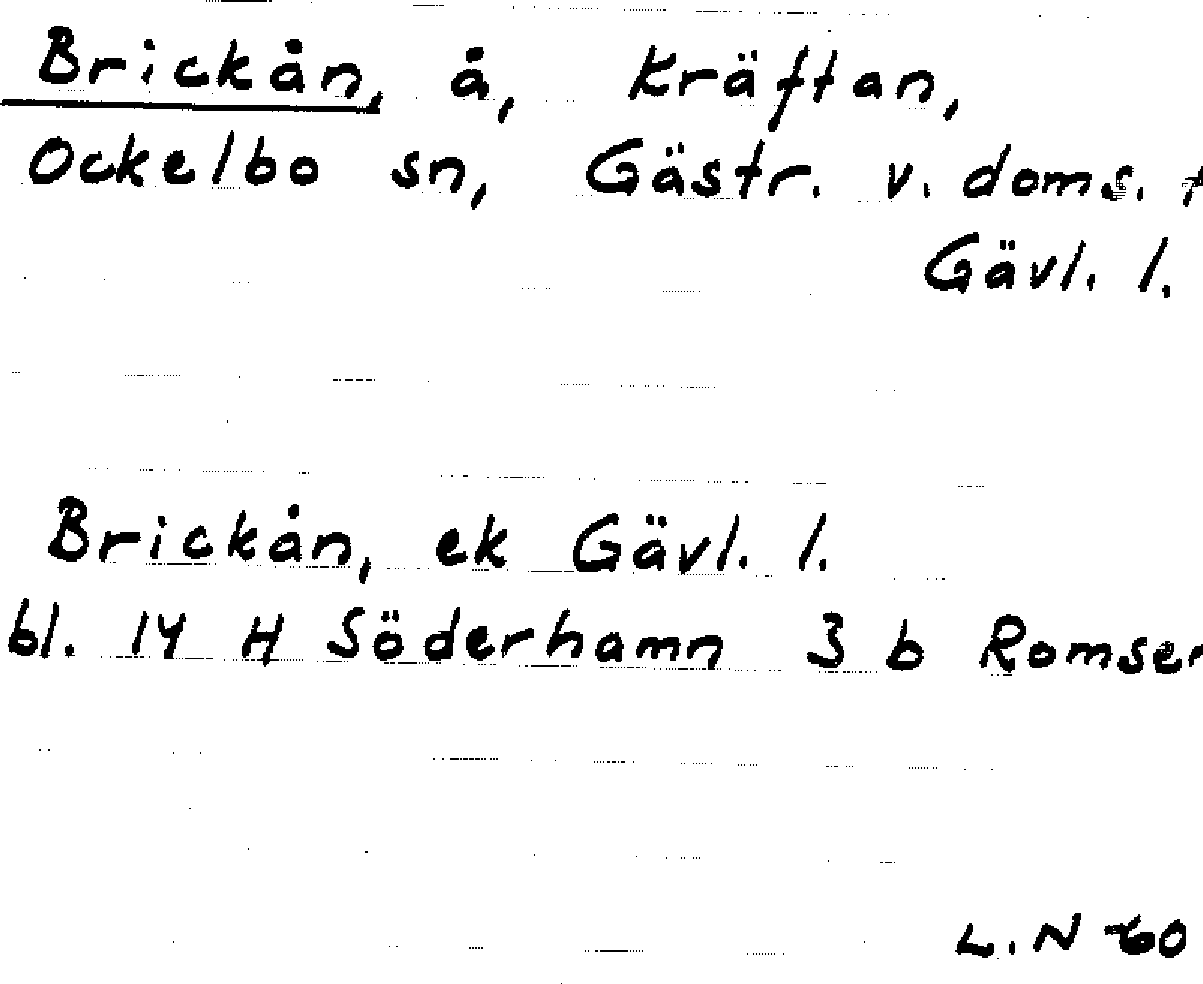 Brickån, å, Kräftan,
Ockelbo sn, Gästr. v. doms.
Gävl. l.
Brickån, ek Gävl. l.
bl. 14 H Söderhamn 3 b Romser
L. N -60